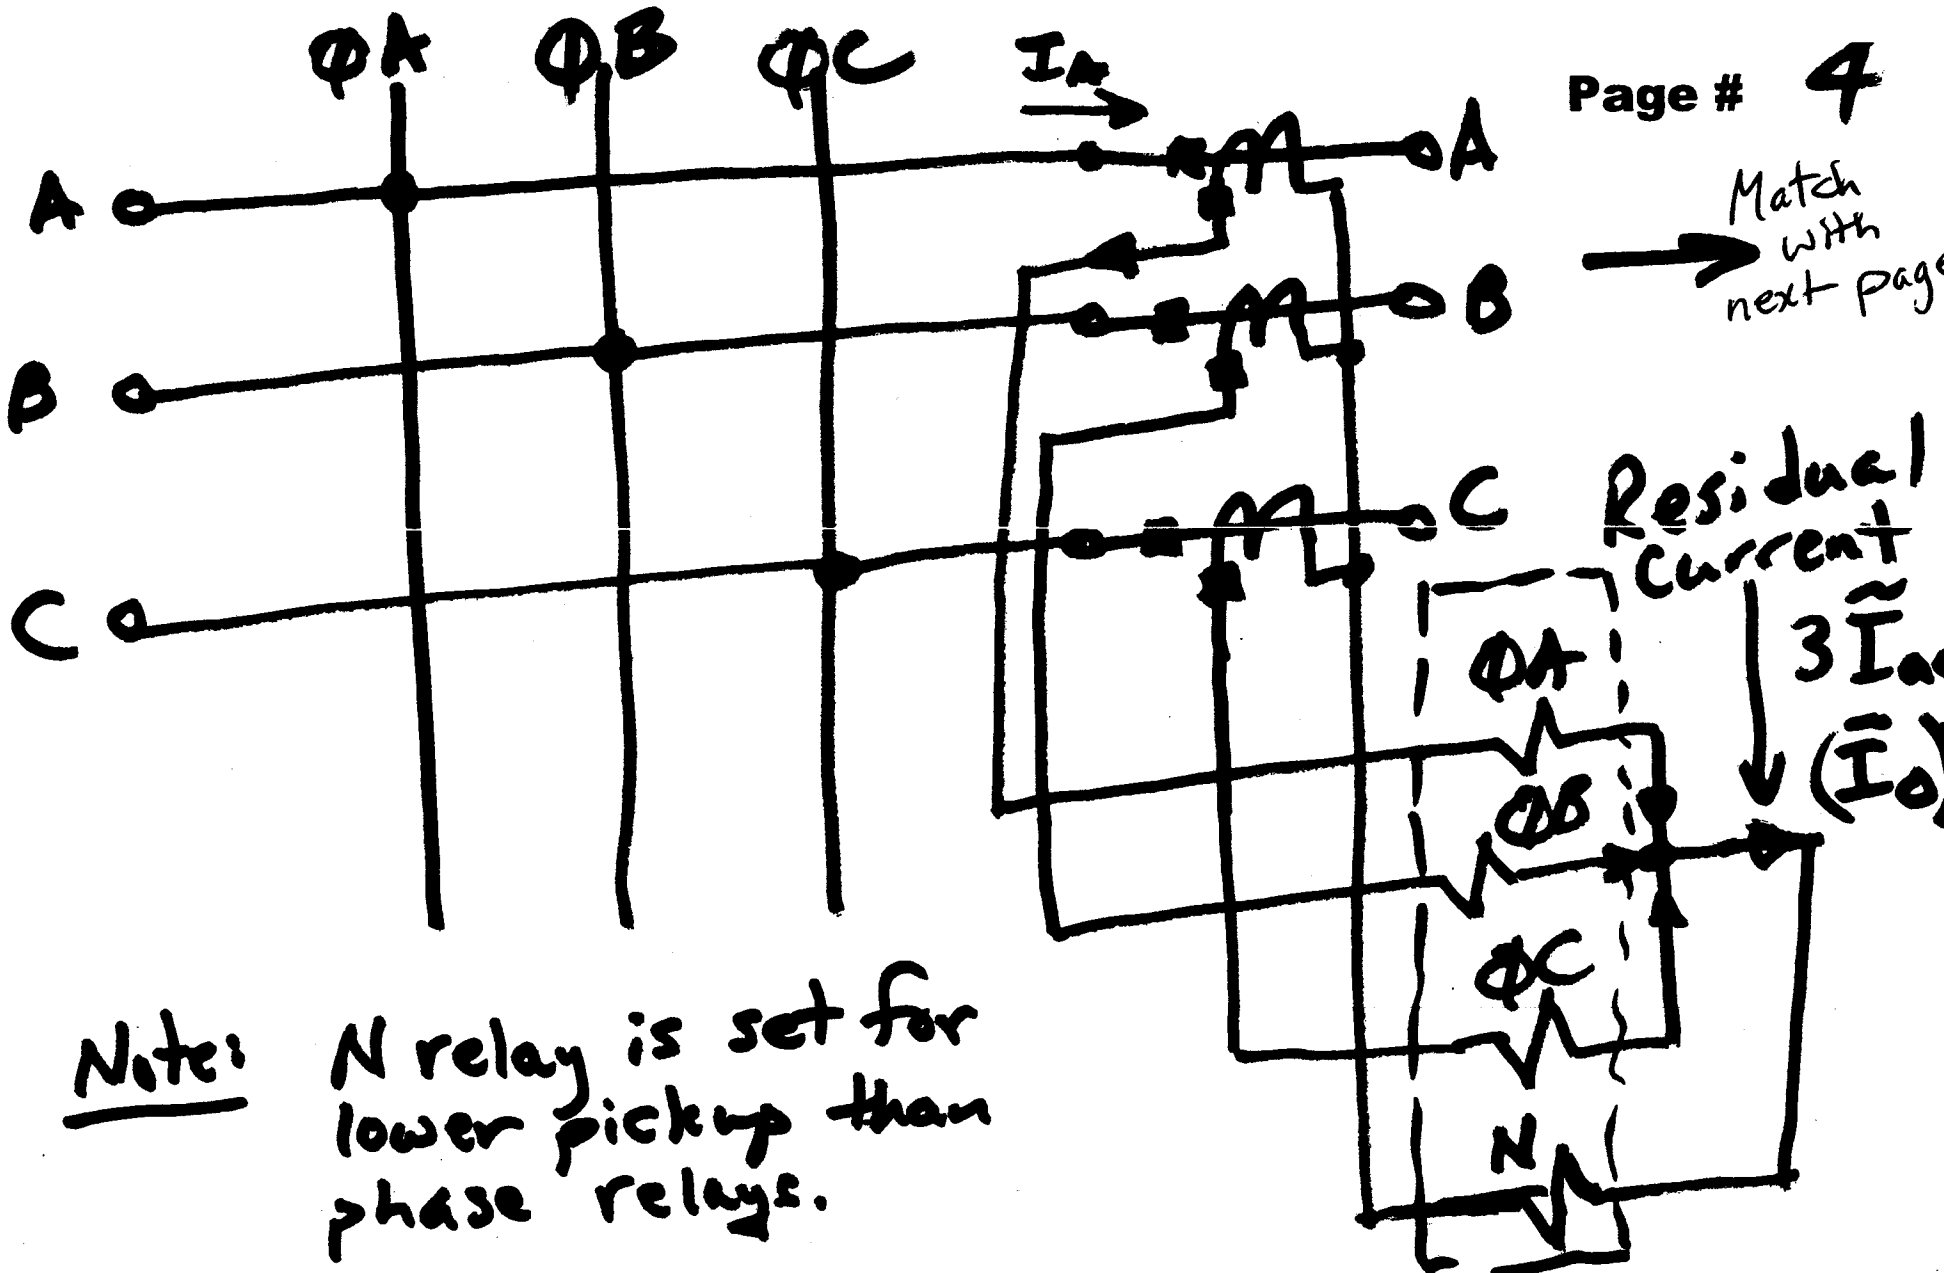 ΦA ΦB ΦC I_A
Page # 4
A
A
Match
with
next page
B
B
C
C
Residual
current
3
ΦA
ΦB
(Ĩ_0)
ΦC
N
Note: N relay is set for
lower pickup than
phase relays.